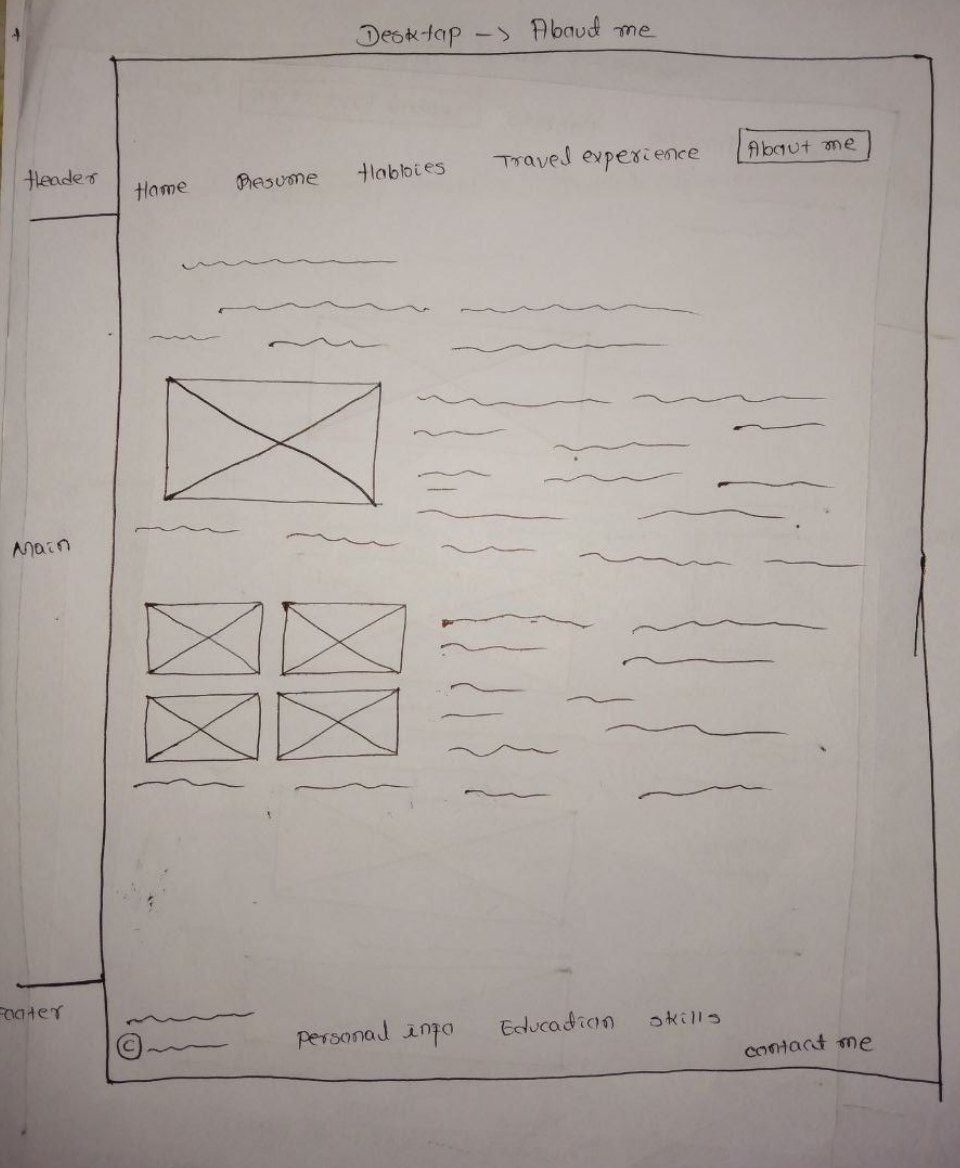 Desktap -> Aboud me
Header
Hame Resume Habbies Travel experience About me
Main
Footer
© personal info Educadian skills contact me